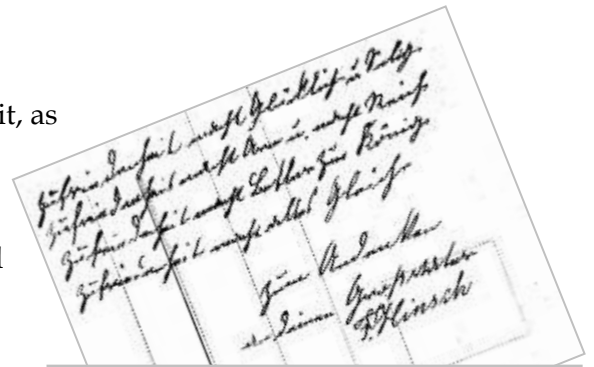 it, as
Zufriedenheit macht Glücklich u. Selig.
Zufriedenheit macht Arm u. macht Reich
Zufriedenheit macht Bettler König
Zufriedenheit macht alles Gleich
Zum Andenken
an Deinen
F. Hinsch